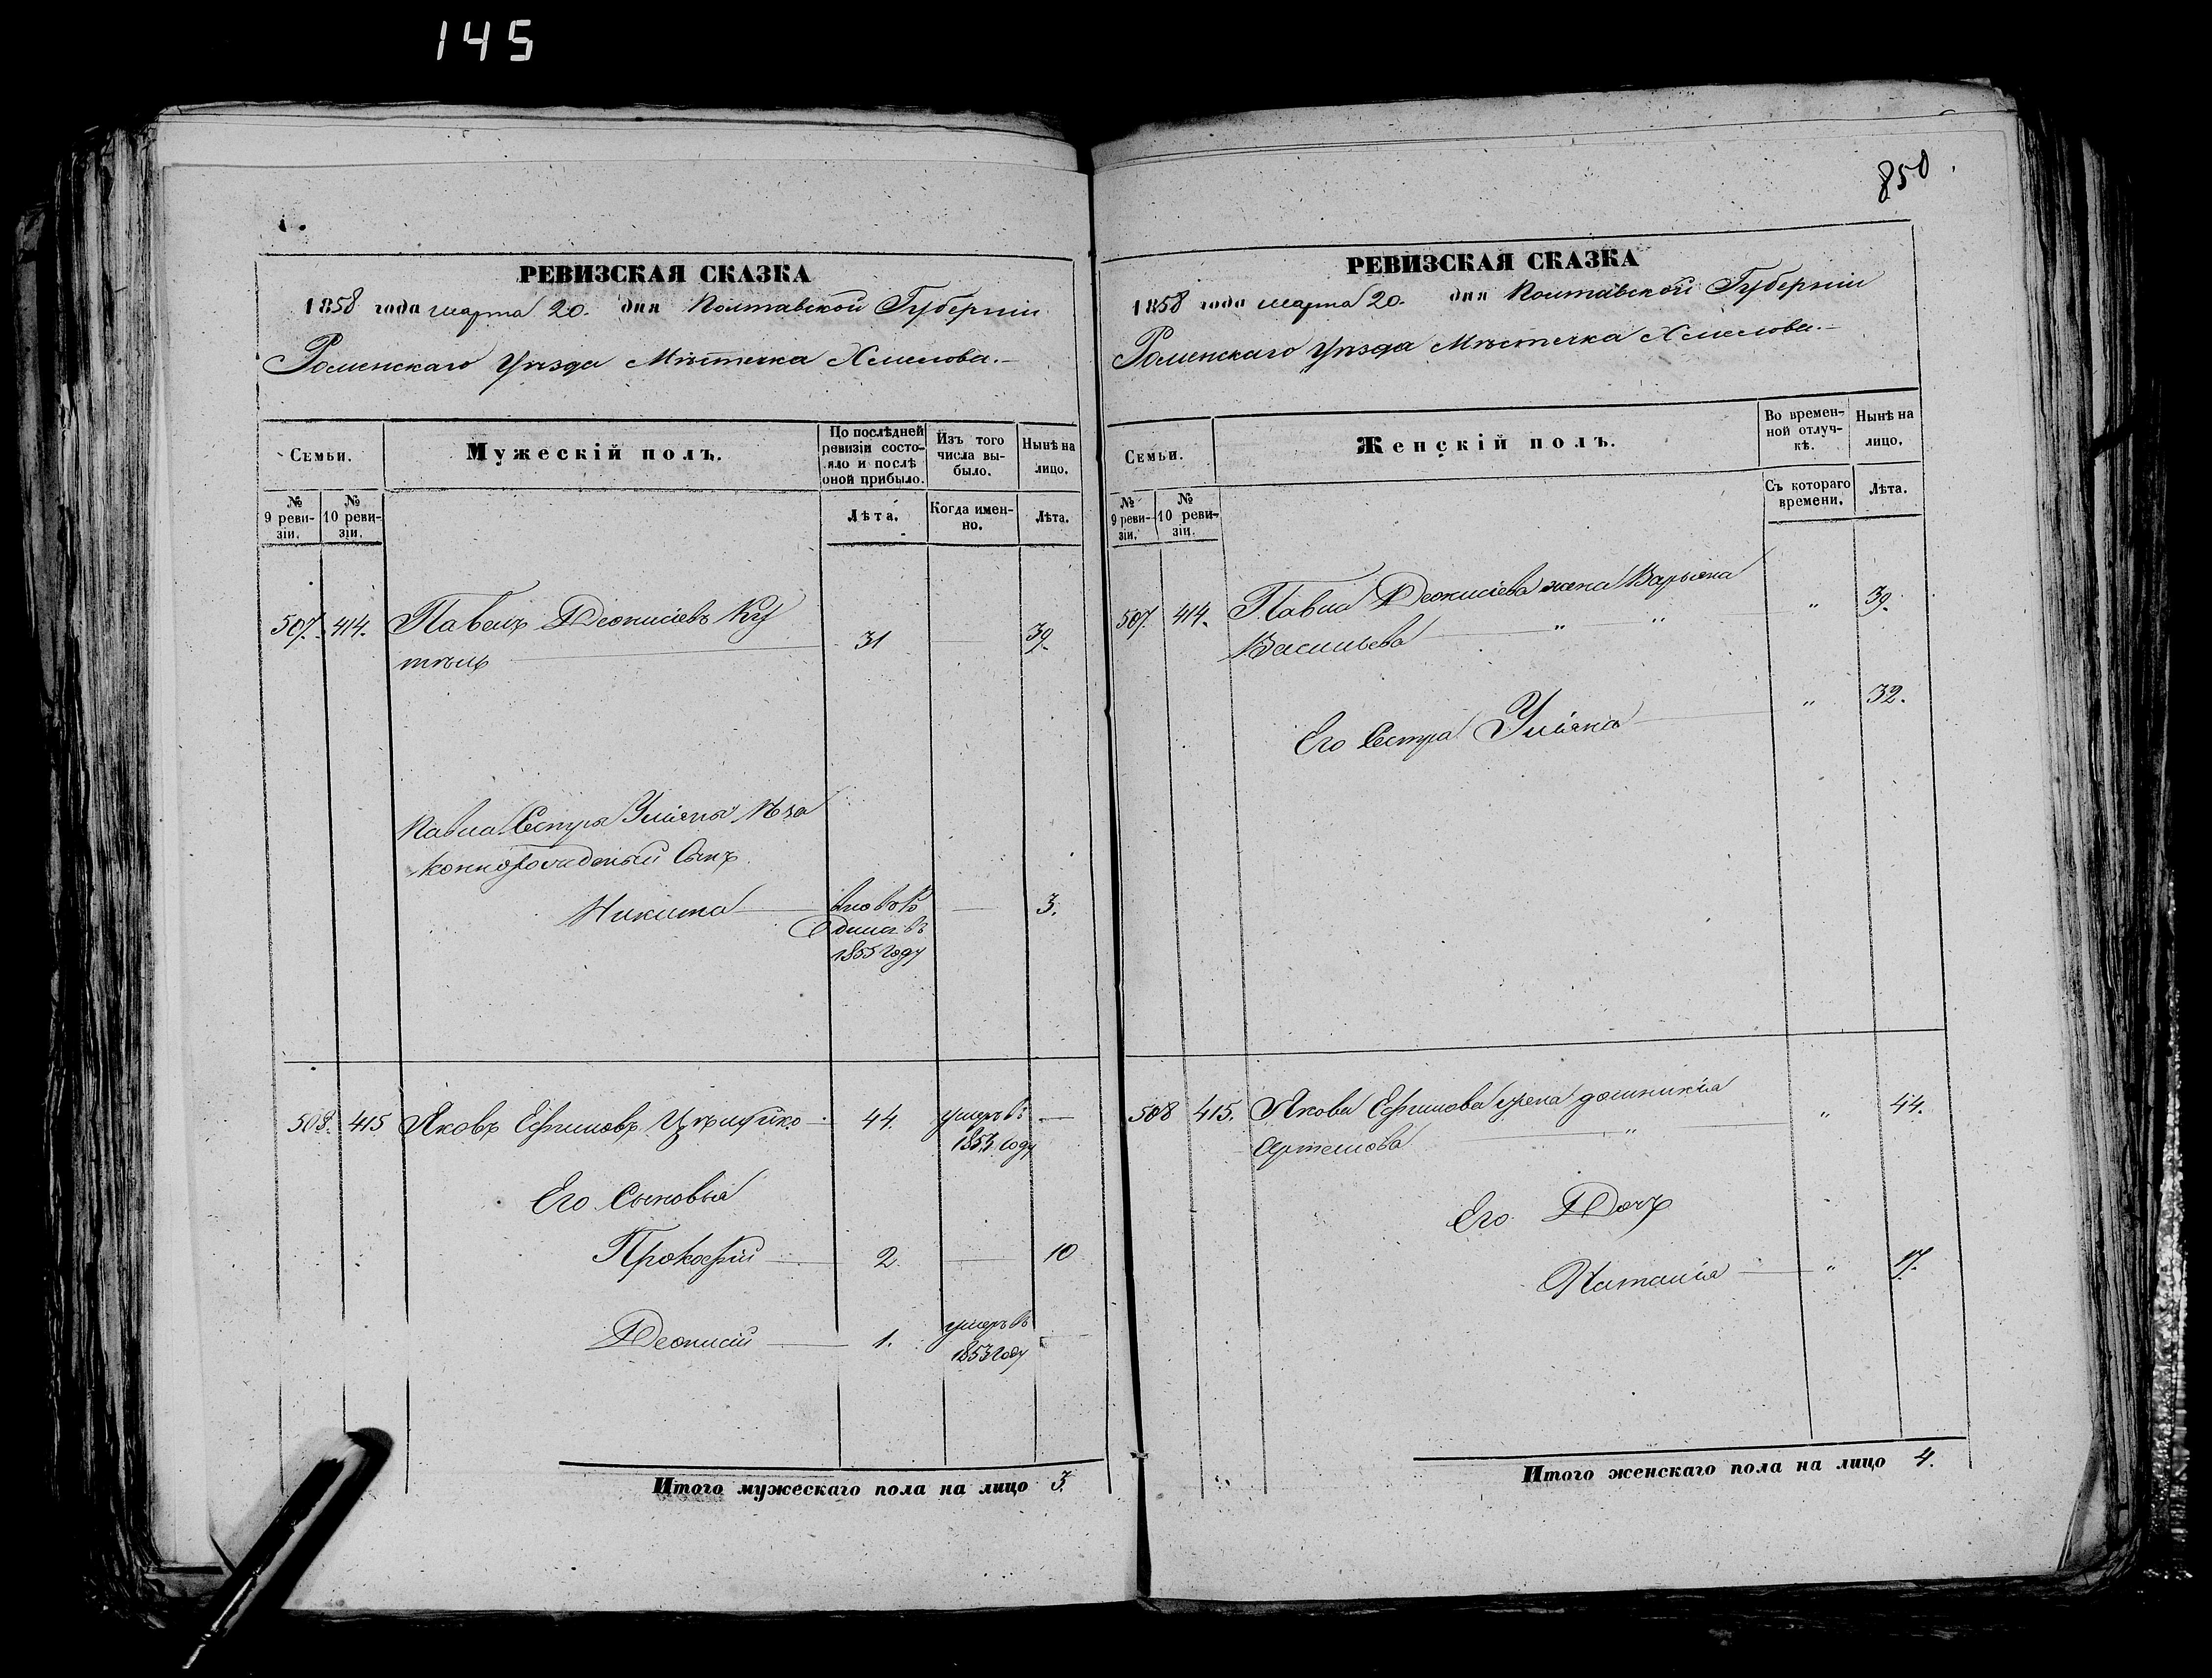 145
РЕВИЗСКАЯ СКАЗКА
1858 года марта 20. дня Полтавской Губерніи
Роменскаго Уѣзда Мѣстечка Хмелова.
Семьи.
Мужескій полъ.
По послѣдней ревизіи состояло и послѣ оной прибыло.
Изъ того числа выбыло.
Нынѣ на лицо.
№ 9 ревизіи.
№ 10 ревизіи.
Лѣта.
Когда именно.
Лѣта.
507. 414. Павелъ Деонисіевъ Ку
31 39.
Павла Сестры Уліяны Неза
коннорожденый Сынъ
Никита вновь ро 3.
дился въ
1855 году
508. 415 Яковъ Ефимовъ 44. умеръ въ
1853 году
Его Сыновья
Прокофій 2. 10
Деонисій 1. умеръ въ
1853 году
Итого мужескаго пола на лицо 3.
850.
РЕВИЗСКАЯ СКАЗКА
1858 года марта 20. дня Полтавской Губерніи
Роменскаго Уѣзда Мѣстечка Хмелова.
Семьи.
Женскій полъ.
Во временной отлучкѣ.
Нынѣ на лицо.
№ 9 ревизіи.
№ 10 ревизіи.
Съ котораго времени.
Лѣта.
507. 414. Павла Деонисіева жена Варьяна " 39.
Васильева " "
Его Сестра Уліяна " 32.
508 415. Якова Ефимова жена домникія " 44.
Артемова "
Его Дочь
Наталія " 17.
Итого женскаго пола на лицо 4.